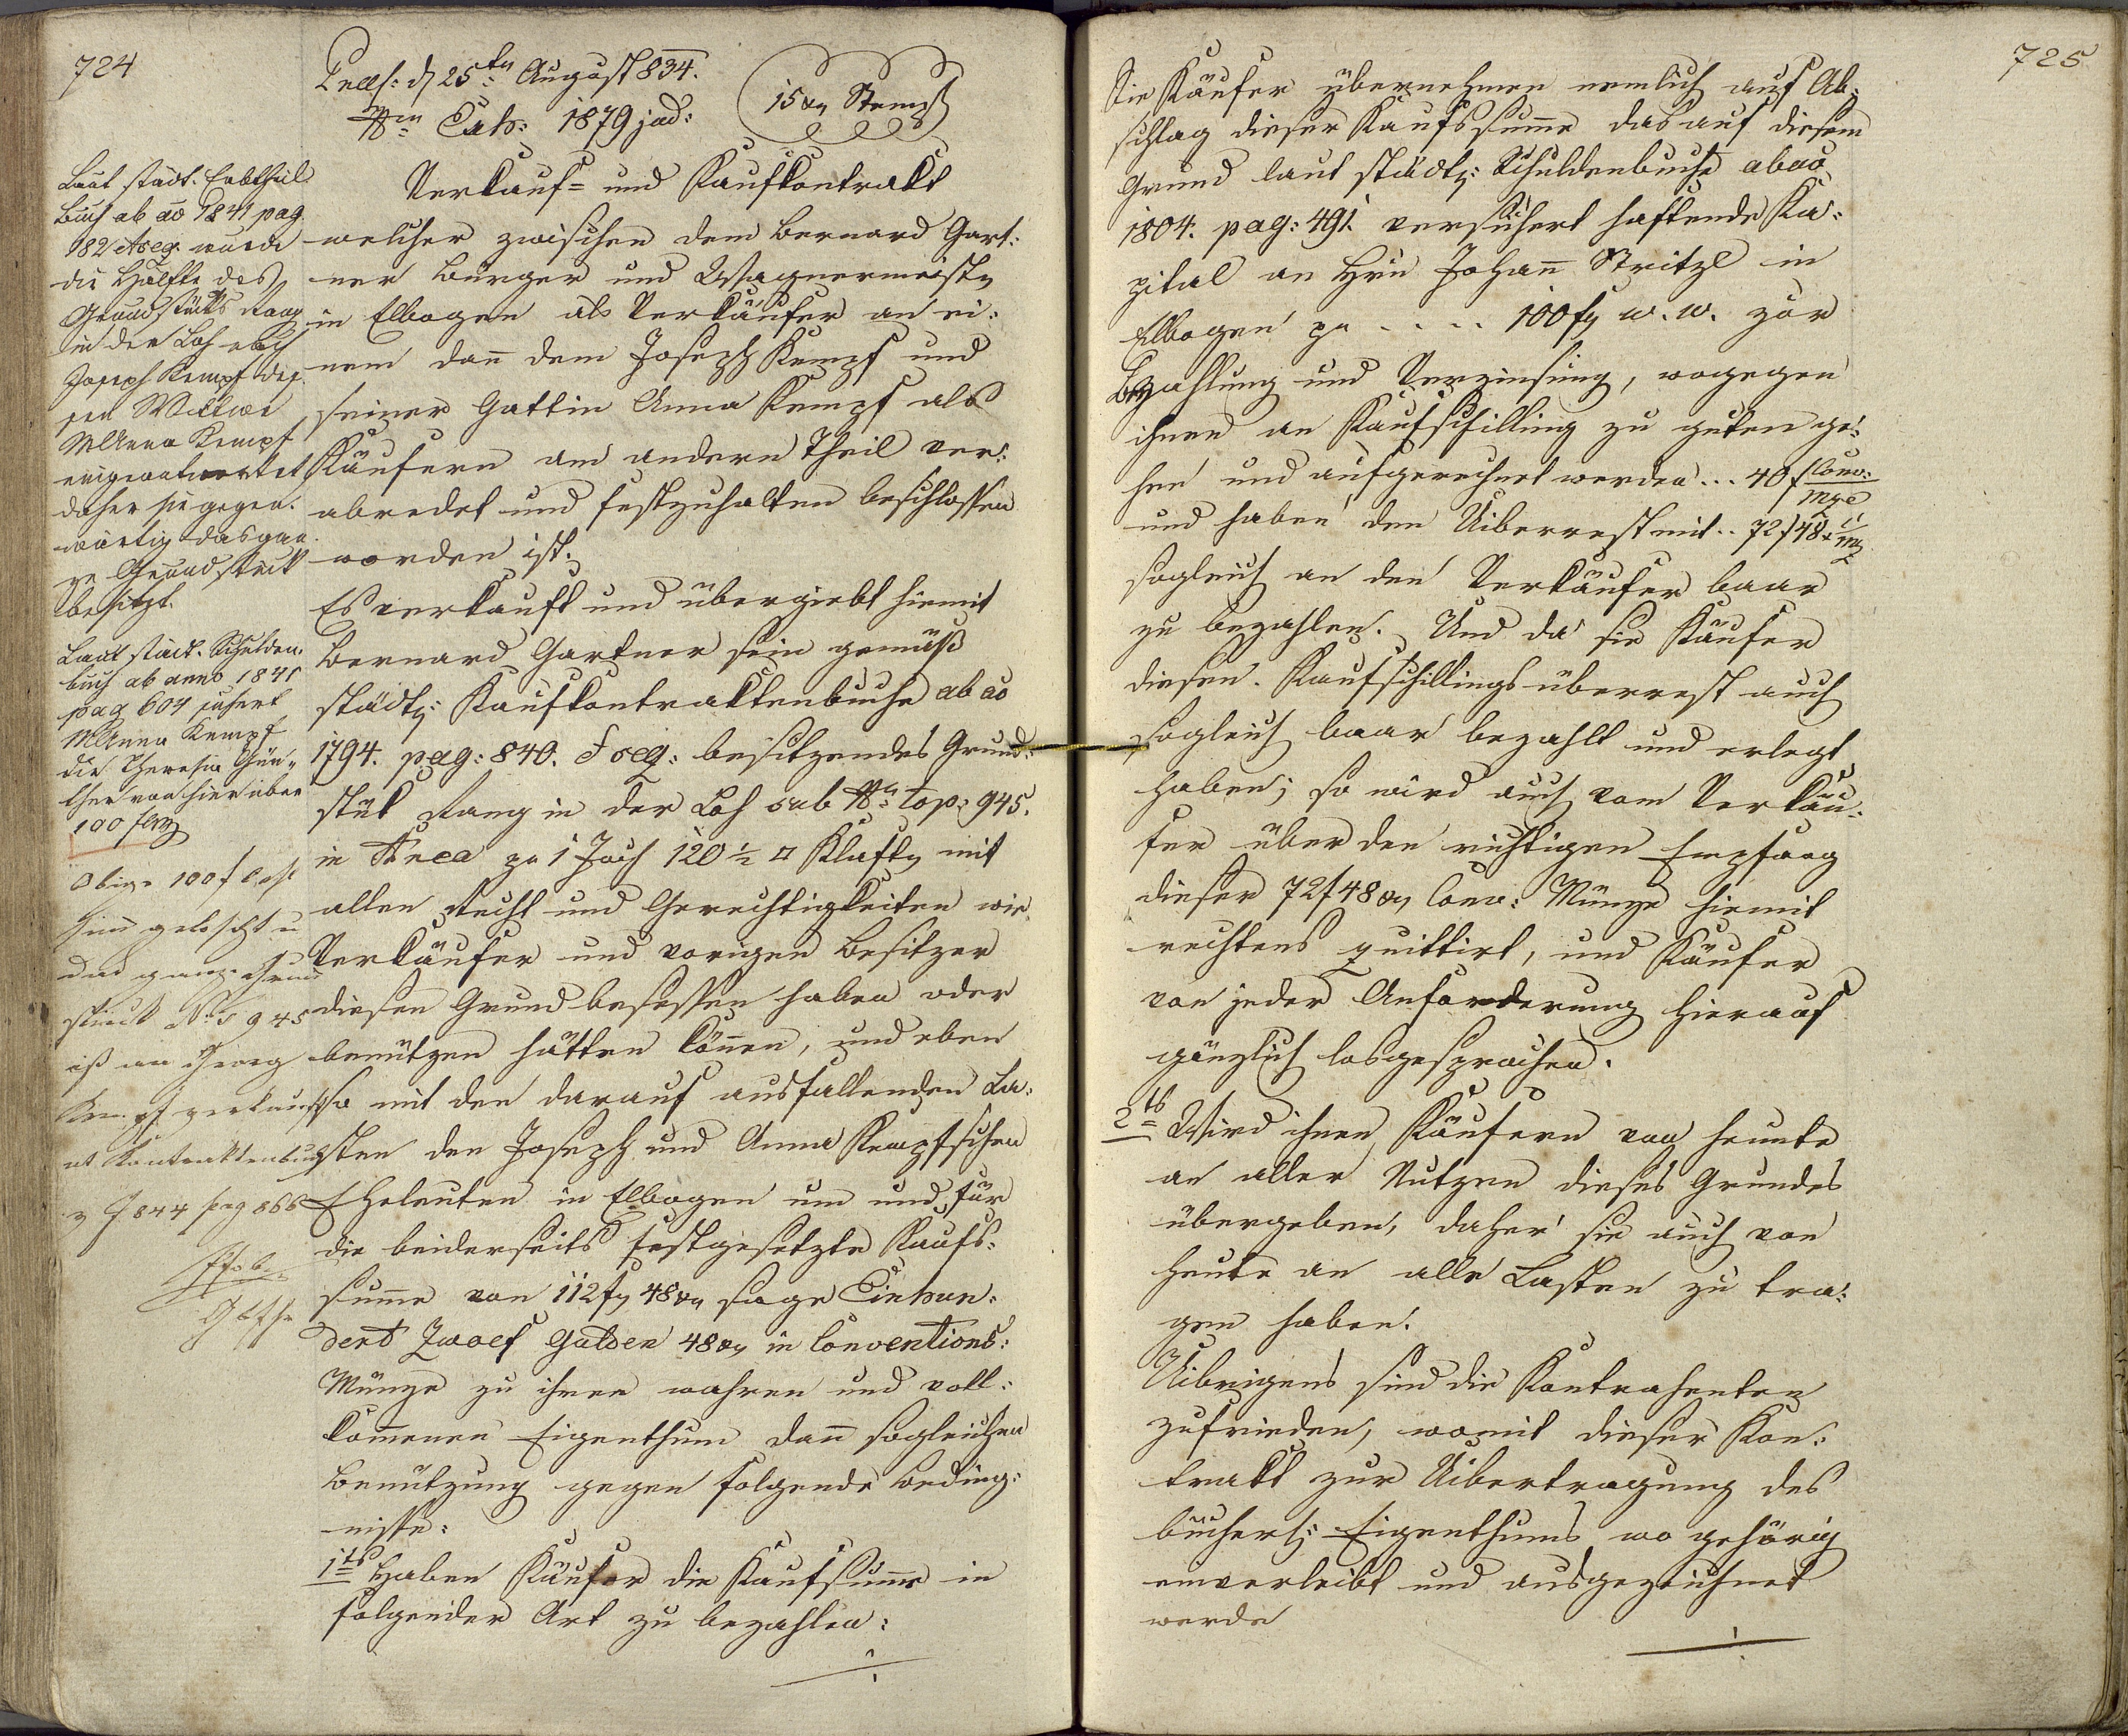 724
Praes: d 25ten August 834.
Nro Exh: 1879 jud:
15 xr Stempl
Verkauf= und Kaufkontrakt
welcher zwischen dem Bernard Gart:
ner Bürger und Wagnermeister
in Elbogen als Verkäufer an ei:
nem dann dem Joseph Kempf und
seiner Gattin Anna Kempf als
Käufern am andern Theil ver:
abredet und festzuhalten beschlossen
worden ist.
Es verkauft und übergiebt hiemit
Bernard Gartner sein gemäß
städt: Kaufkontraktenbuche ab ao
1794. pag: 840. & seq: besitzendes Grund:
stük Rang in der Loh sub Nro top: 945.
in Area zu 1 Joch 120 ½ □ Klaftr mit
allen Recht und Gerechtigkeiten wie
Verkäufer und vorigen Besitzer
diesen Grund besessen haben oder
benützen hätten können, und eben
so mit den darauf ausfallenden La:
sten den Joseph und Anna Kempfschen
Eheleuten in Elbogen um und für
die beiderseits festgesetzte Kaufs:
summe von 112 fr 48 xr sage Einhun:
dert Zwoelf Gulden 48 xr in Conventions:
Münze zu ihren wahren und voll:
kommenen Eigenthum dann sogleichen
Benützung gegen folgende Beding:
nisse:
1ts Haben Käufer die Kaufsumme in
folgender Art zu bezahlen:
Laut städt. Erbtheil
buch ab ao 1841 pag.
182 & seq. wurde
die Hälfte des
Grundstücks Rang
in der Loh nach
Joseph Kempf des
sen Wittwe
M Anna Kempf
eingeantwortet
daher sie gegen.
wärtig das gan
ze Grundstück
besitzt.
Laut städt. Schulden.
buch ab anno 1841
pag 604 sichert
M Anna Kempf
die Theresia Gün„
ther von hier über
100 f
Obige 100 f
gelöscht u
das ganze Grund
stück Nro 945
ist an Georg
Kempf verkauft
ut Kontraktenbuch
v J 844 pag 866
725
Die Käufer übernehmen nemlich auf Ab:
schlag dieser Kaufssumme das auf diesem
Grund laut städt: Schuldenbuche ab ao
1804. pag: 491. versichert haftende Ka:
pital an Hrn Johann Stritzl in
Elbogen pr .... 100 fr w. w. zur
Bezahlung und Verzinsung, wogegen
ihnen am Kaufschilling zu guten ge:
hen und aufgerechnet werden ... 40 f Conv:
Mze
und haben den Uiberrest mit .. 72 f 48 x "
sogleich an den Verkäufer baar
zu bezahlen. Und da sie Käufer
diesen Kaufschillingsüberrest auch
sogleich baar bezahlt und erlegt
haben; so wird auch vom Verkäu:
fer über den richtigen Empfang
dieser 72 f 48 xr Conv: Münze hiemit
rechtens quittirt, und Käufer
von jeder Anforderung hierauf
gänzlich losgesprochen.
2ts Wird ihnen Käufern von heute
an aller Nutzen dieses Grundes
übergeben, daher sie auch von
heute an alle Lasten zu tra:
gen haben.
Uibrigens sind die Kontrahenten
zufrieden, womit dieser Kon:
trakt zur Uibertragung des
bücherl: Eigenthums wo gehörig
einverleibt und ausgezeichnet
werde